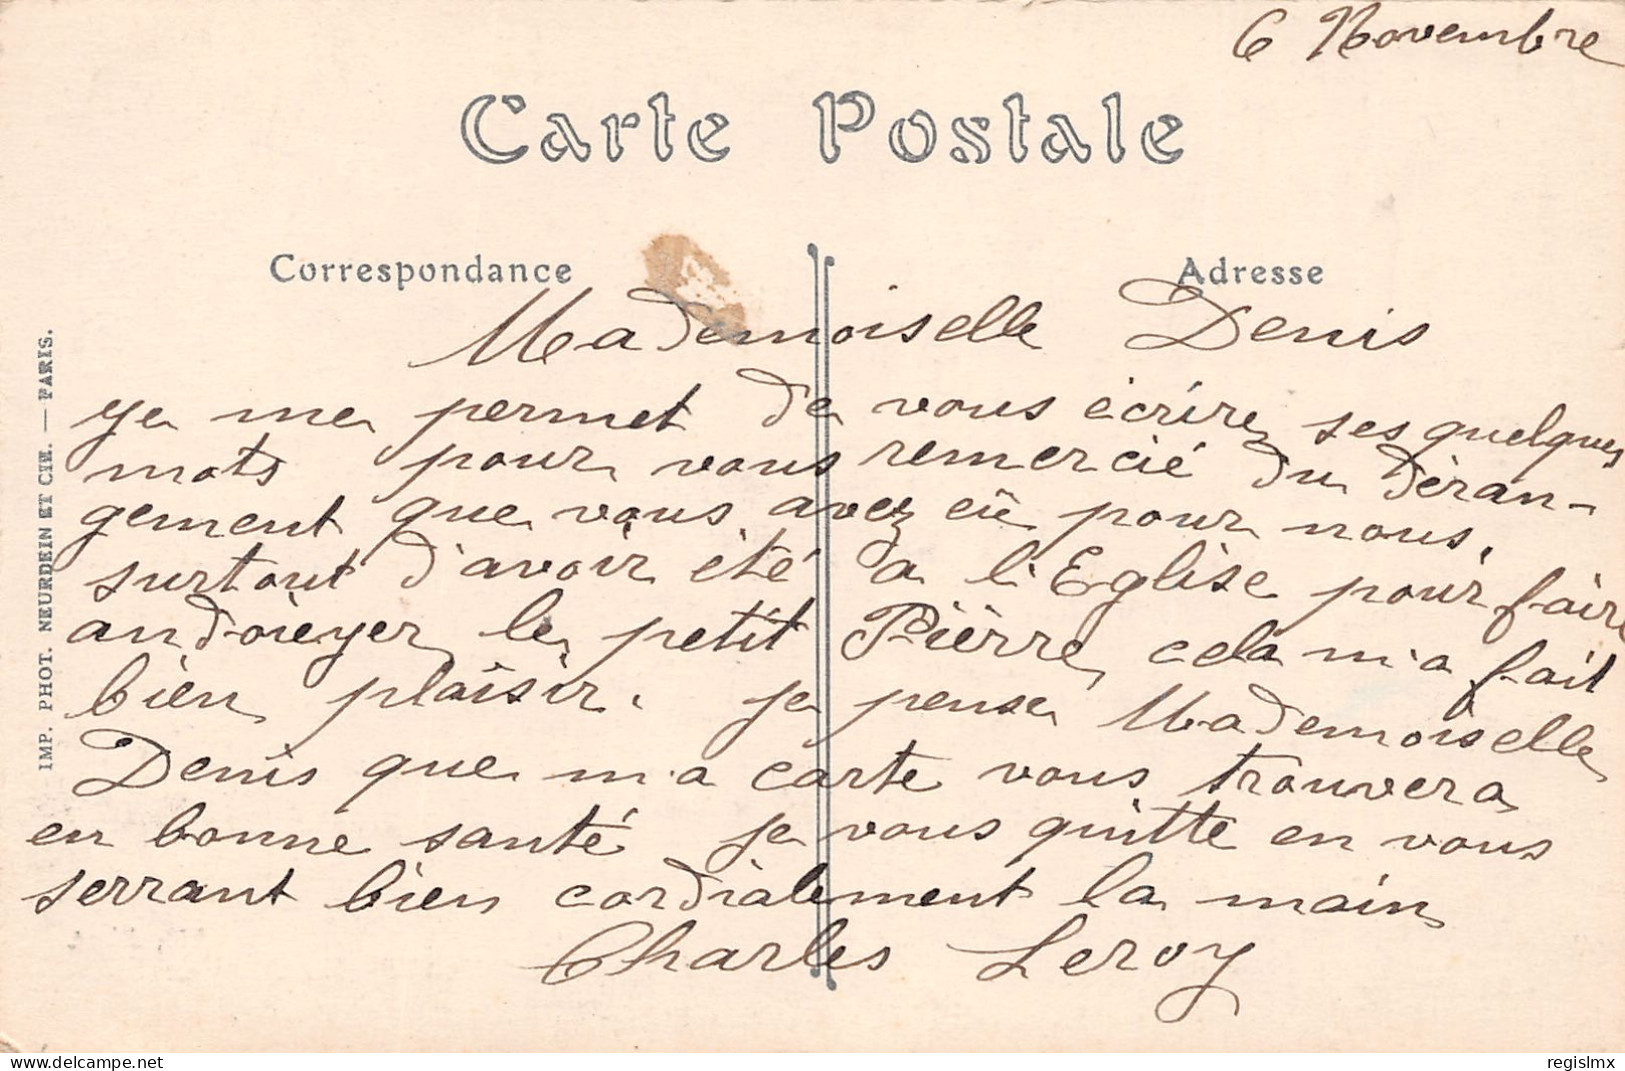 6 Novembre
Carte Postale
Correspondance
Adresse
Mademoiselle Denis
je me permet de vous écrire ses quelques
mots pour vous remercié du déran-
gement que vous avez eû pour nous,
surtout d'avoir été a l'Eglise pour faire
andoieyer le petit Pièrre, cela m'a fait
bien plaîsir. je pense Mademoiselle
Denis que m'a carte vous trouvera
en bonne santé je vous quitte en vous
serrant bien cordialement la main
Charles Leroy
IMP. PHOT. NEURDEIN ET CIE. — PARIS.
www.delcampe.net
regislmx